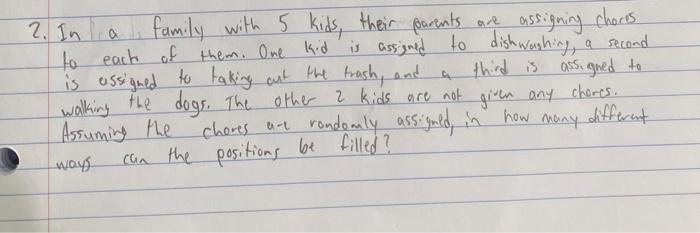 2. In a family with 5 kids, their parents are assigning chores
to each of them. One kid is assigned to dishwashing, a second
is assigned to taking out the trash, and a third is assigned to
walking the dogs. The other 2 kids are not given any chores.
Assuming the chores are randomly assigned, in how many different
ways can the positions be filled?